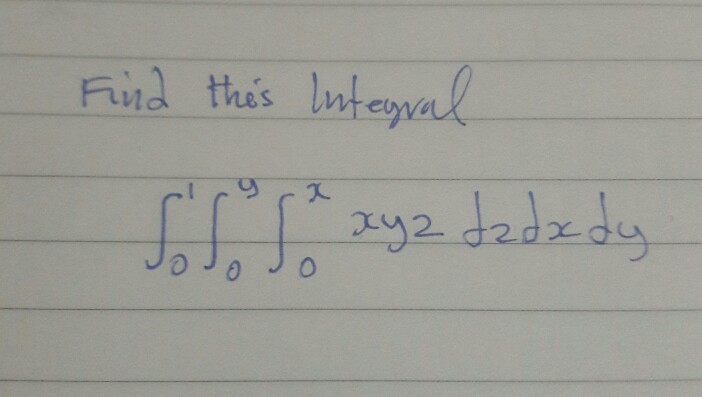 Find this Integral
∫₀¹ ∫₀ʸ ∫₀ˣ xyz dzdxdy